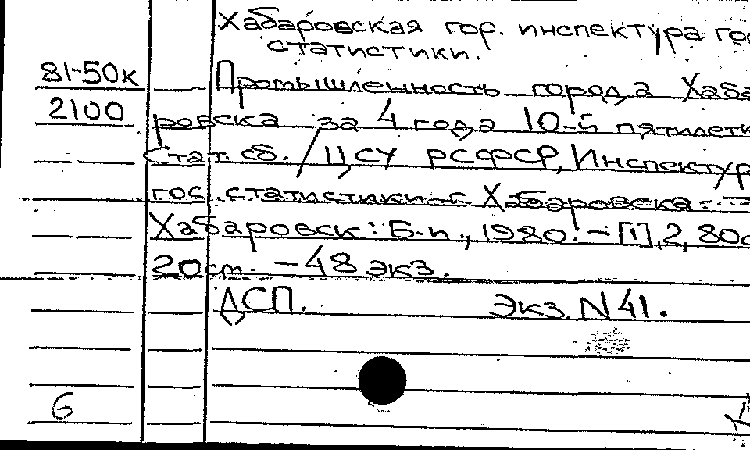 Хабаровская гор. инспектура гос
статистики.
81-50к Промышленность города Хаба
2100 ровска за 4 года 10-й пятилетк
Стат. сб. / ЦСУ РСФСР, Инспектур
гос. статистики г. Хабаровска. —
Хабаровск: Б.и., 1980. – [1], 2, 80с
20см. – 48 экз.
ДСП. Экз. N 41.
6